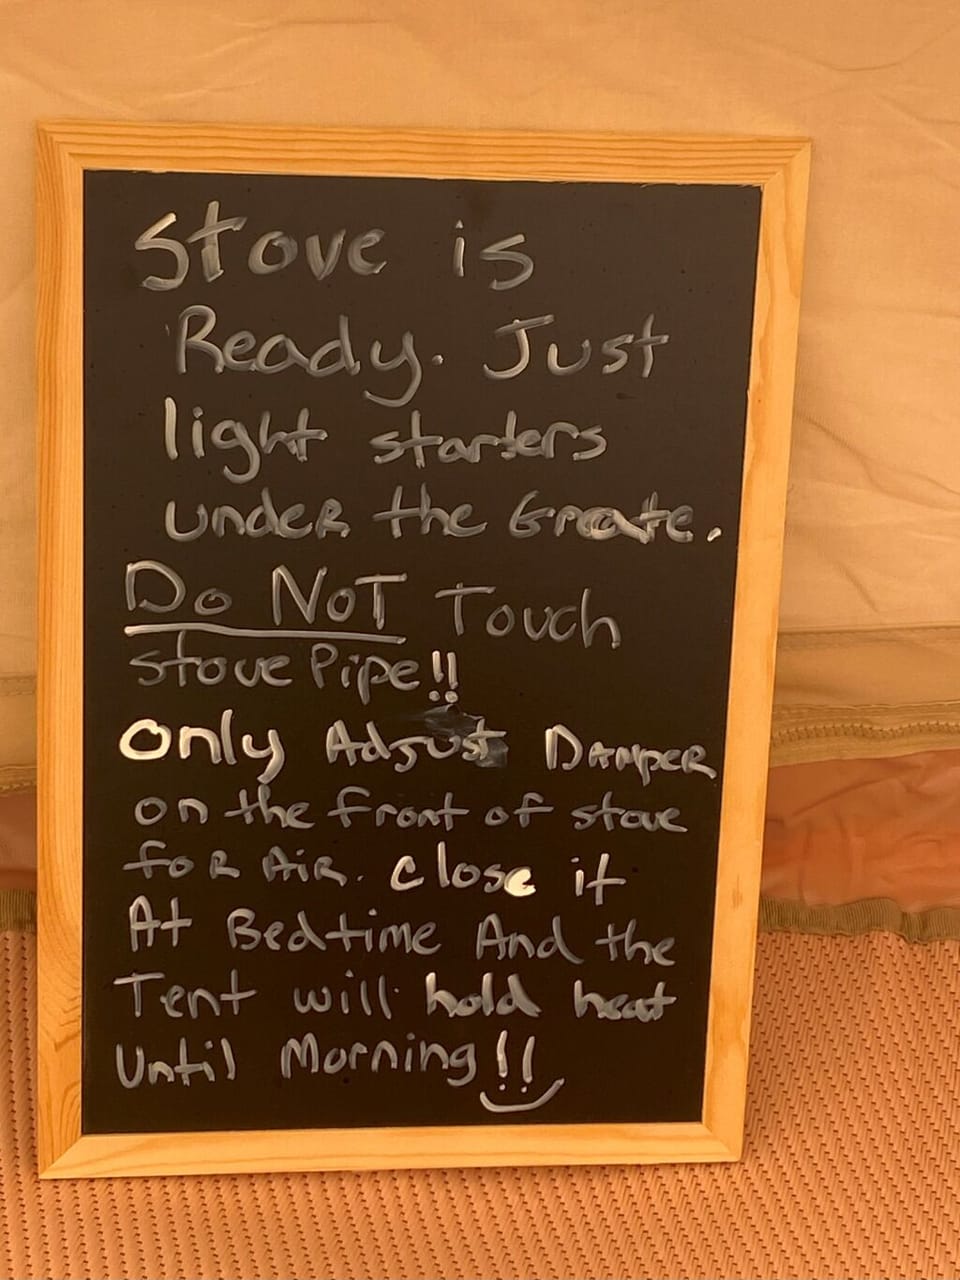 Stove is
Ready. Just
light starters
under the Greate.
Do NoT Touch
stove Pipe!!
Only Adjust Damper
on the front of stove
for Air. close it
At Bedtime And the
Tent will hold heat
Until Morning!!